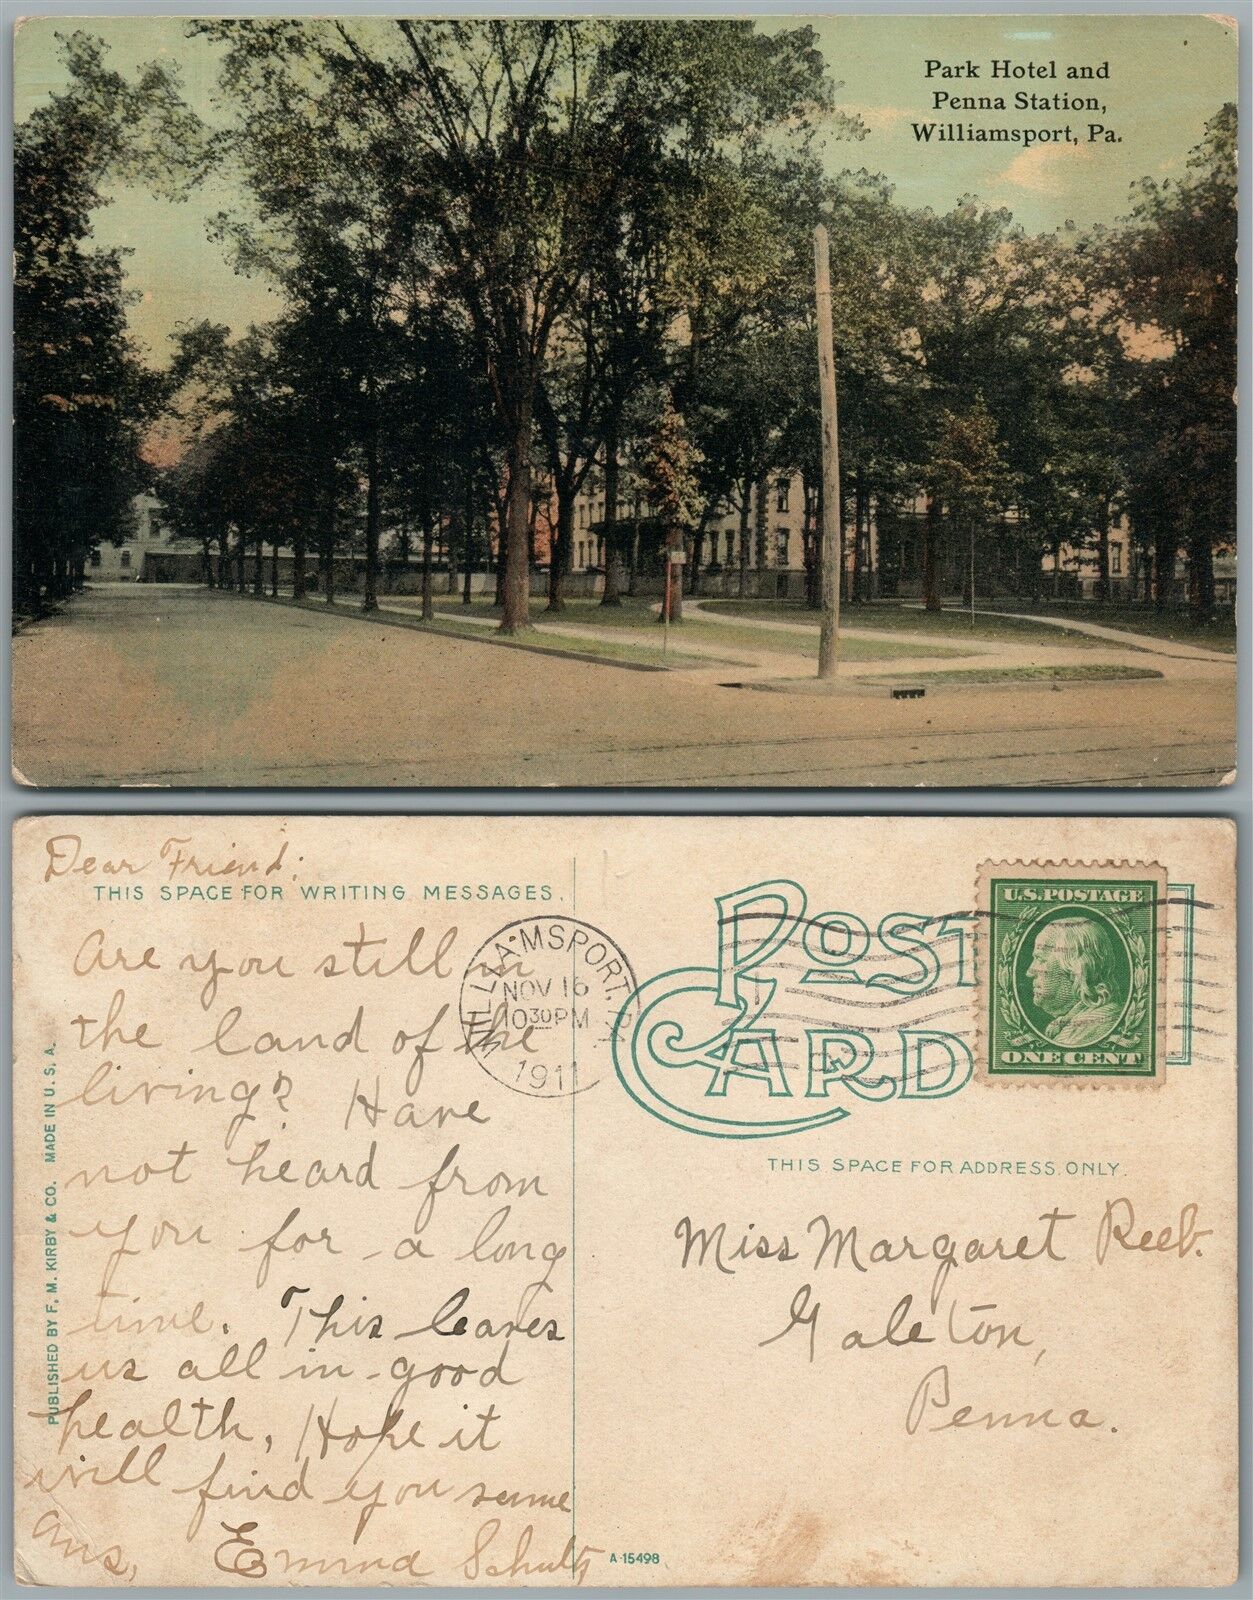 Park Hotel and
Penna Station,
Williamsport, Pa.
Dear Friend:
THIS SPACE FOR WRITING MESSAGES.
Are you still in
the land of the
living? Have
not heard from
you for a long
time. This leaves
us all in good
health, Hope it
will find you same
Ans. Emma Schultz
PUBLISHED BY F. M. KIRBY & CO. MADE IN U. S. A.
WILLIAMSPORT, PA.
NOV 16
1030 PM
1911
POST
CARD
U.S. POSTAGE
ONE CENT
THIS SPACE FOR ADDRESS ONLY.
Miss Margaret Reeb.
Galeton,
Penna.
A-15498